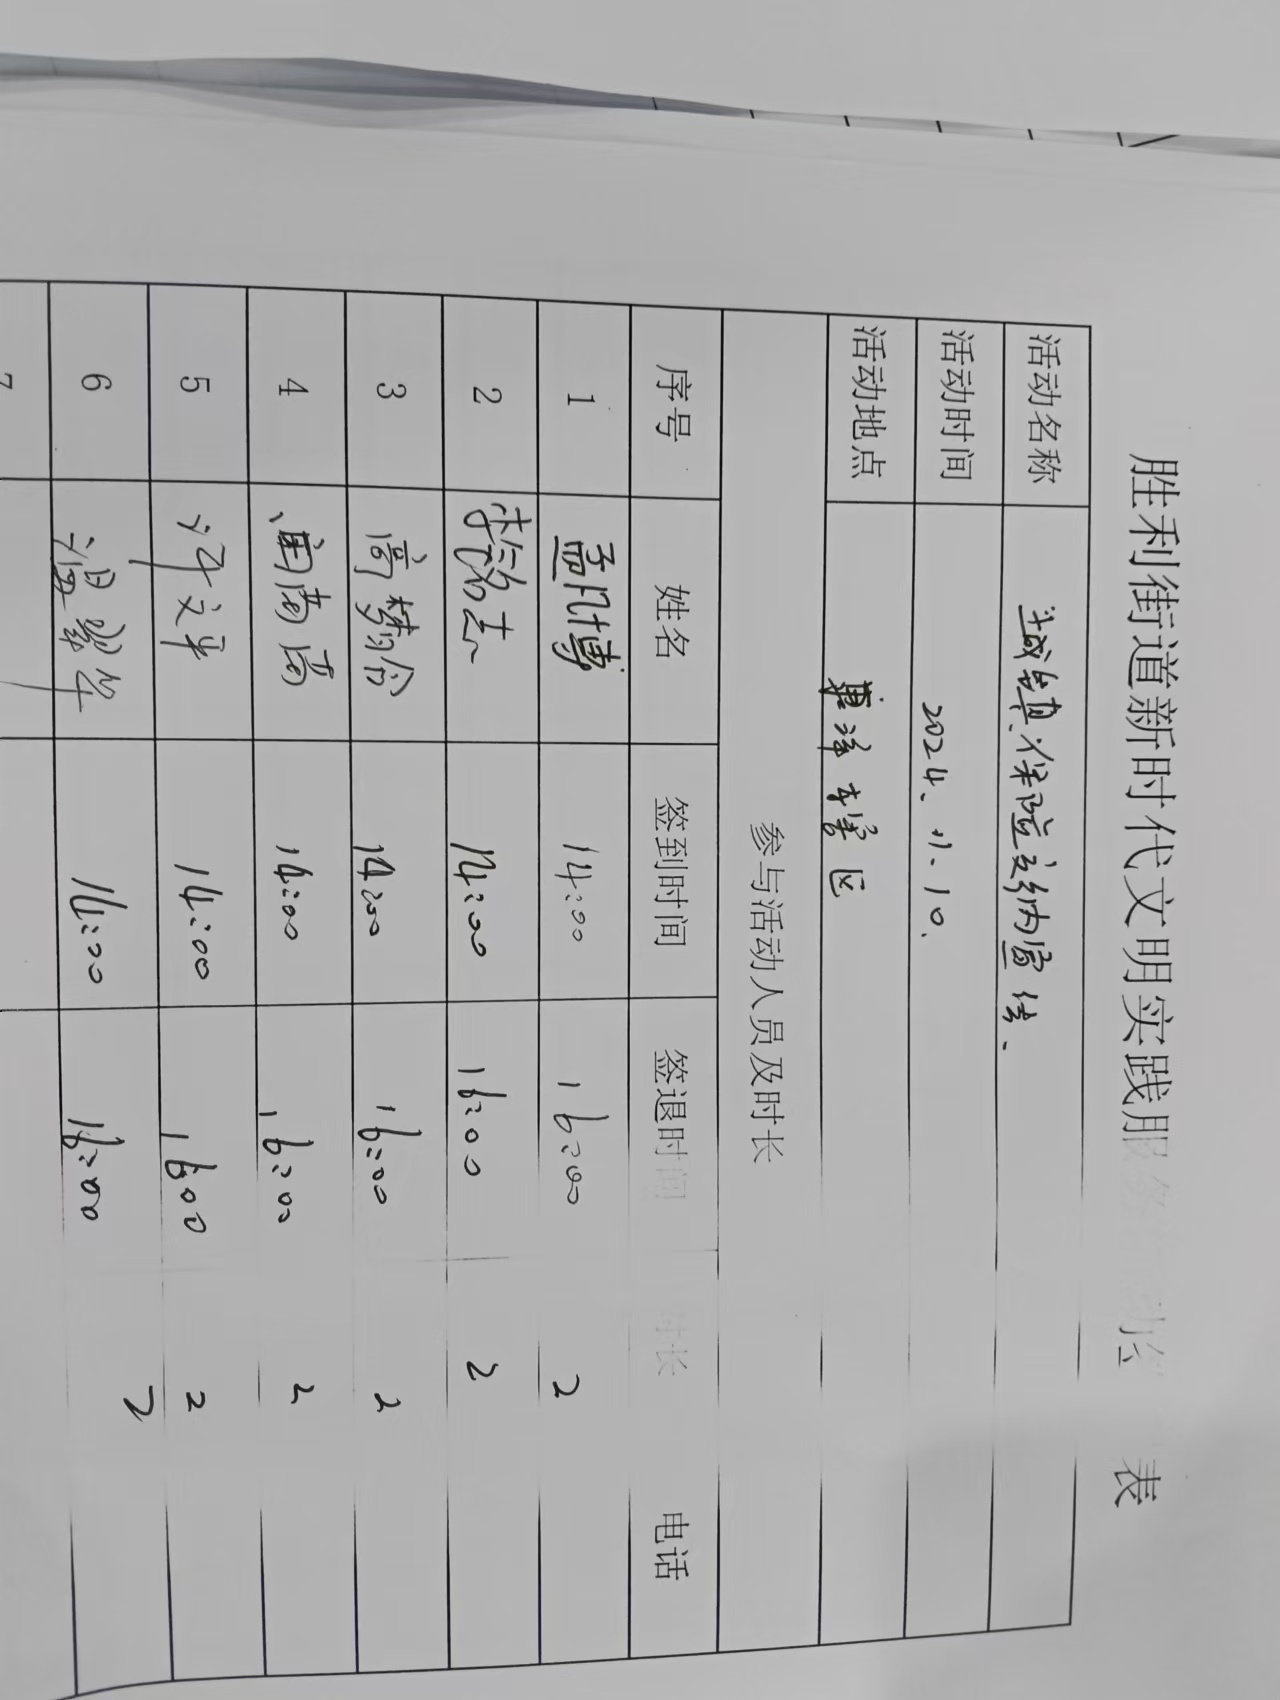 胜利街道新时代文明实践服务活动签 表
活动名称 城镇保险交纳宣传.
活动时间 2024.11.10.
活动地点 区
参与活动人员及时长
序号 姓名 签到时间 签退时间 时长 电话
1 孟凡博 14:00 16:00 2
2 14:00 16:00 2
3 高梦 14:00 16:00 2
4 14:00 16:00 2
5 许文平 14:00 1600 2
6 温翠华 14:00 16:00 2
7